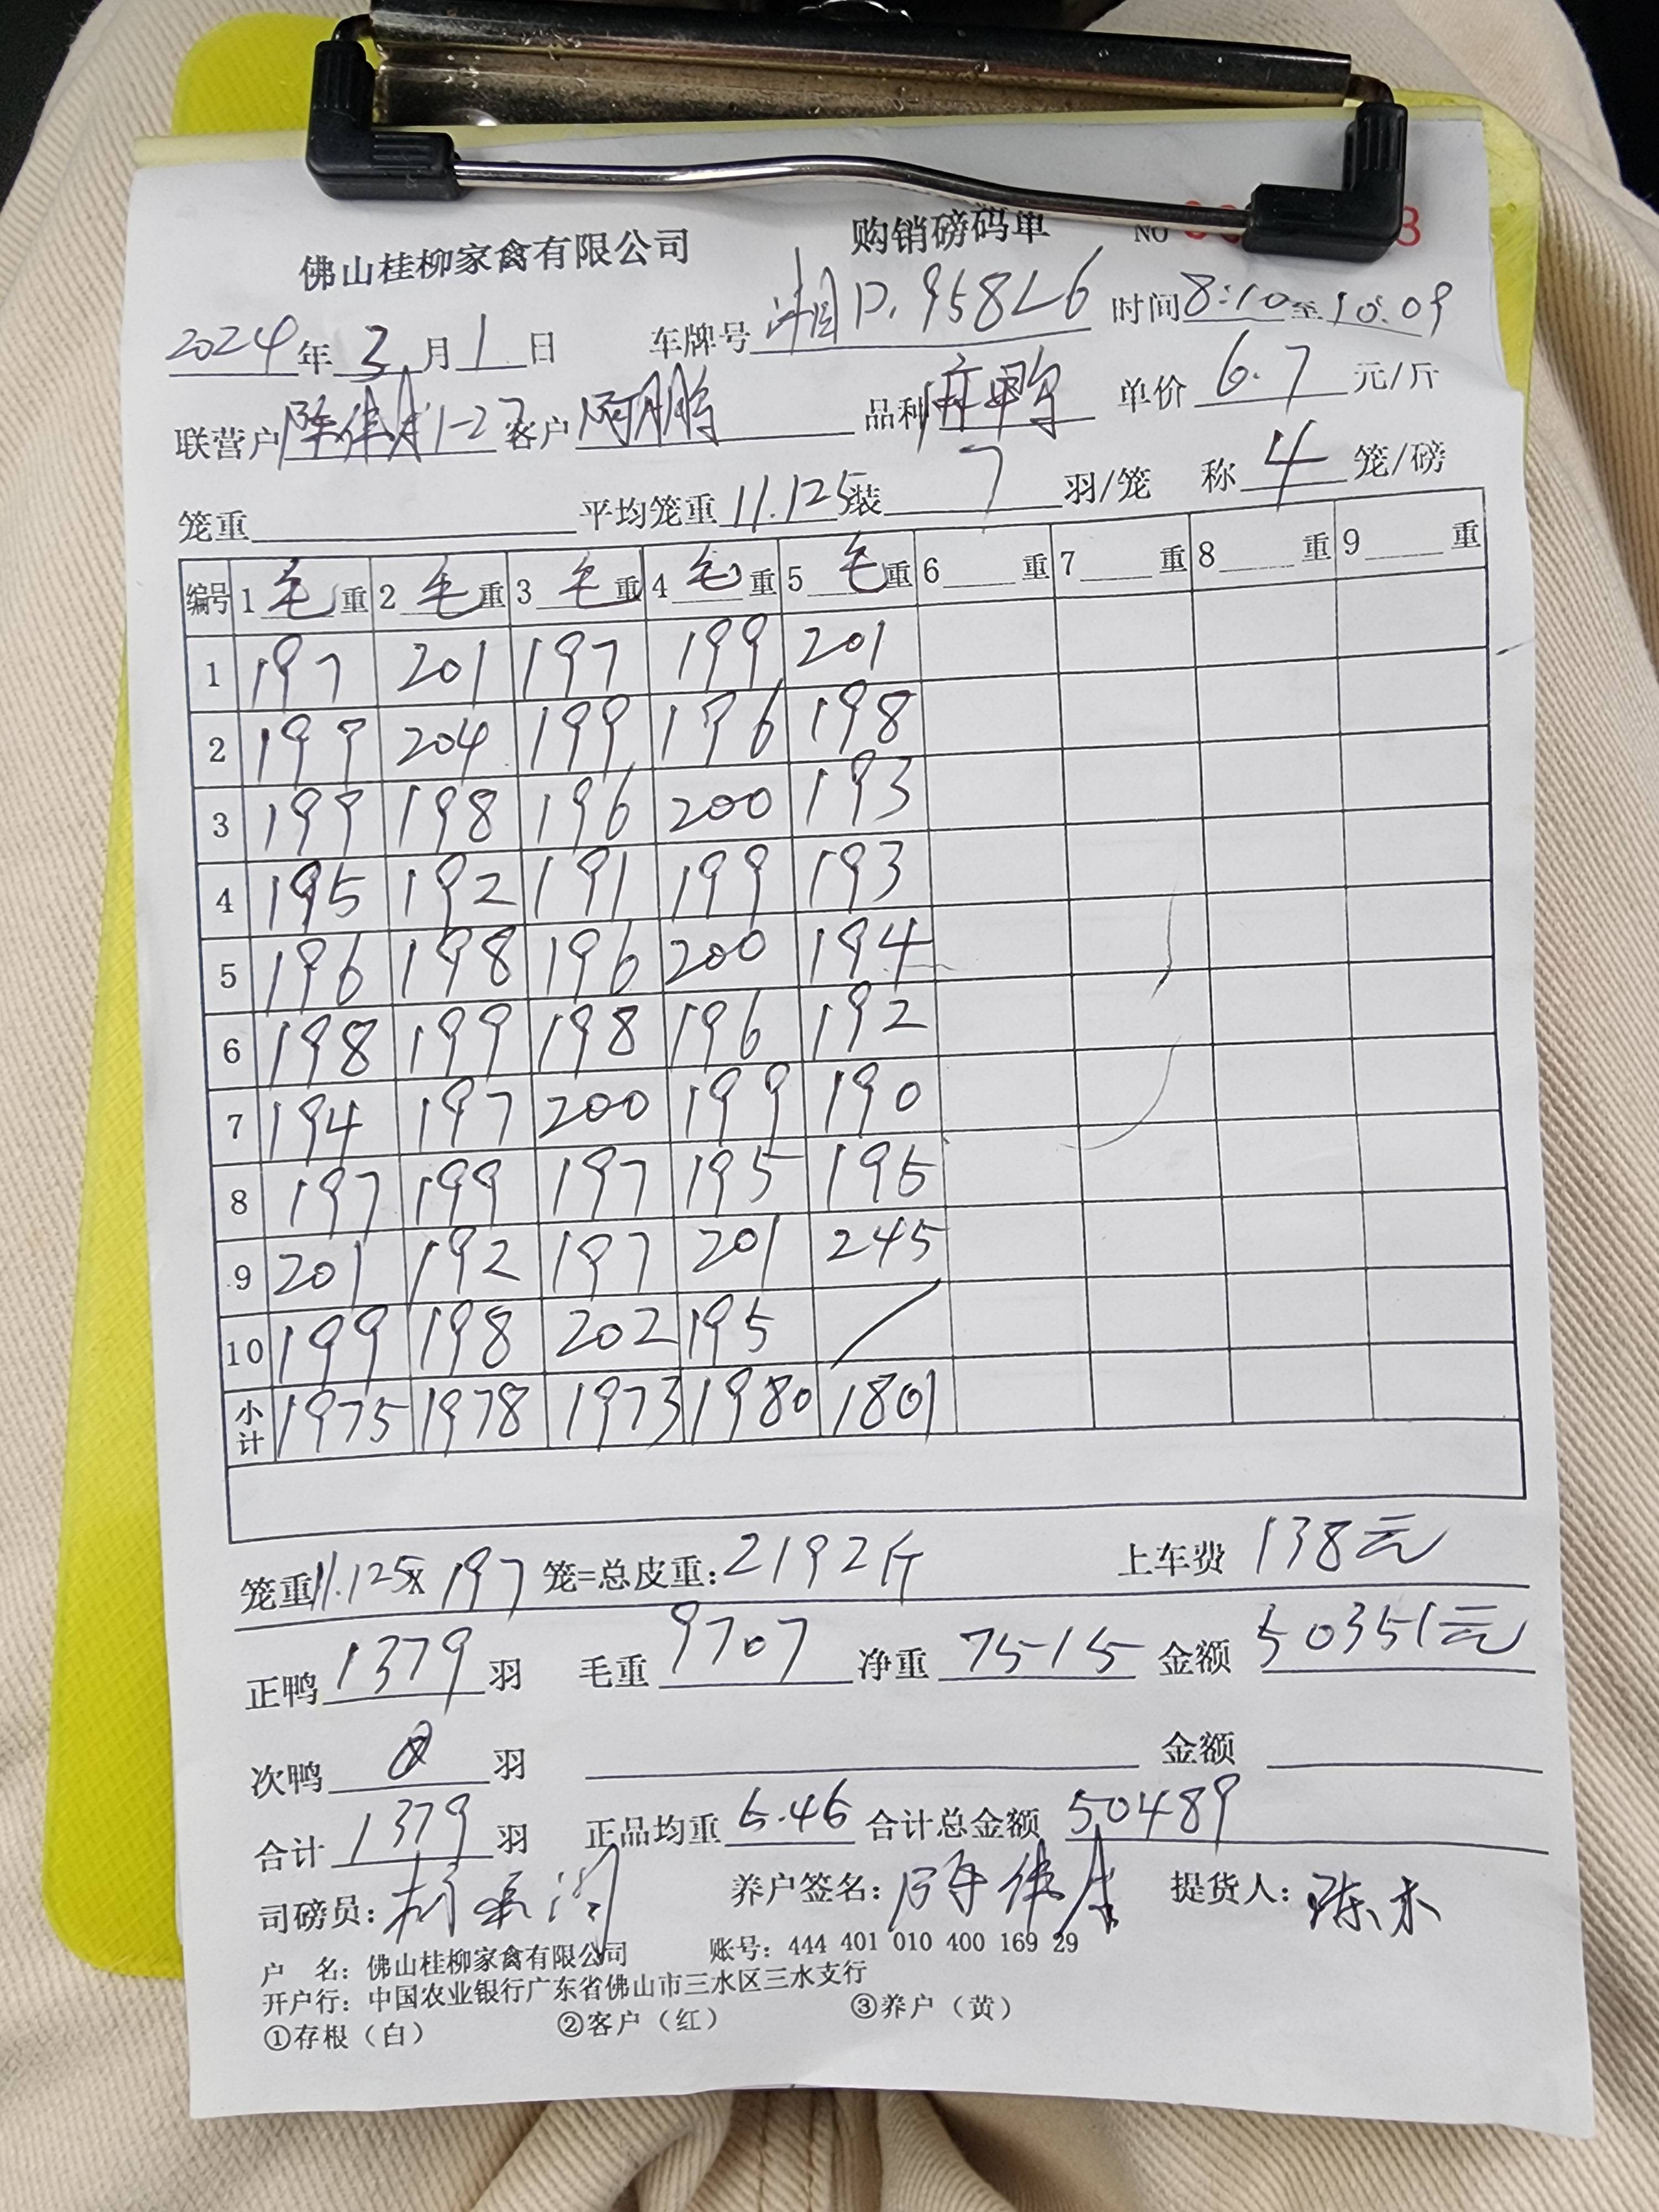 佛山桂柳家禽有限公司 购销磅码单 NO
2024年3月1日 车牌号湘D.958L6 时间8:10至10:09
联营户陈伟1-27客户阿鹏 品种麻鸭 单价6.7元/斤
笼重 平均笼重11.125装7羽/笼 称4笼/磅
编号 1毛重 2毛重 3毛重 4毛重 5毛重 6重 7重 8重 9重
1 197 201 197 199 201
2 199 204 199 196 198
3 199 198 196 200 193
4 195 192 191 199 193
5 196 198 196 200 194
6 198 199 198 196 192
7 194 197 200 199 190
8 197 199 197 195 195
9 201 192 197 201 245
10 199 198 202 195 /
小计 1975 1978 1973 1980 1801
笼重11.125x197笼=总皮重:2192斤 上车费138元
正鸭1379羽 毛重9707净重7515金额50351元
次鸭0羽 金额
合计1379羽 正品均重5.45合计总金额50489
司磅员: 养户签名:陈伟 提货人:陈木
户 名: 佛山桂柳家禽有限公司 账号: 444 401 010 400 169 29
开户行: 中国农业银行广东省佛山市三水区三水支行
①存根(白) ②客户(红) ③养户(黄)